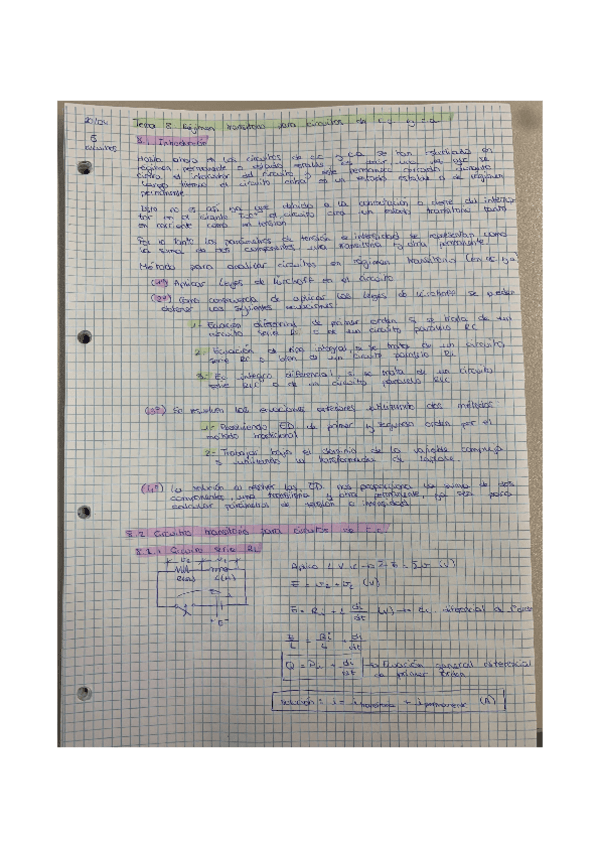 Tema 8 Régimen transitorio para circuitos de c.c. y c.a.
5
8.1. Introducción
Hasta ahora en los circuitos de c.c. y c.a. se han estudiado en
régimen permanente o estado estable. Es decir una vez que se
cierra el interruptor del circuito y este permanece cerrado durante
largo tiempo el circuito entra en un estado estable o de régimen
permanente
Esto no es así ya que debido a la conmutación o cierre del interrup
tor en el instante el circuito crea un estado transitorio tanto
en corriente como en tensión
Por lo tanto los parámetros de tensión e intensidad se representan como
la suma de dos componentes una transitoria y otra permanente.
Método para analizar circuitos en régimen transitorio
(1º) Aplicar Leyes de Kirchoff en el circuito
(2º) Como consecuencia de aplicar las leyes de Kirchoff se pueden
obtener las siguientes ecuaciones:
1- Ecuación diferencial de primer orden si se trata de un
circuito serie RL o de un circuito paralelo RC
2- Ecuación de tipo integral, si se trata de un circuito
serie RC o bien de un circuito paralelo RL
3- Ec integro diferencial, si se trata de un circuito
serie RLC o de un circuito paralelo RLC
(3º) Se resuelven las ecuaciones anteriores utilizando dos métodos
1- Resolviendo ED de primer y segundo orden por el
método tradicional
2- Trabajar bajo el dominio de la variable compleja
s utilizando la transformada de Laplace.
(4º) La solución al resolver las ED nos proporciona la suma de dos
componentes, una transitoria y otra permanente, ya sea para
calcular parámetros de tensión o intensidad
8.2 Circuitos transitorio para circuitos de c.c.
8.2.1 Circuito serie RL
R(Ω) L(H)
Aplico L V K
E = Ri + L di/dt (V) → Ec. diferencial
E/L = Ri/L + di/dt
→ Ecuación general diferencial
de primer orden
Solución: i = i transitoria + i permanente (A)